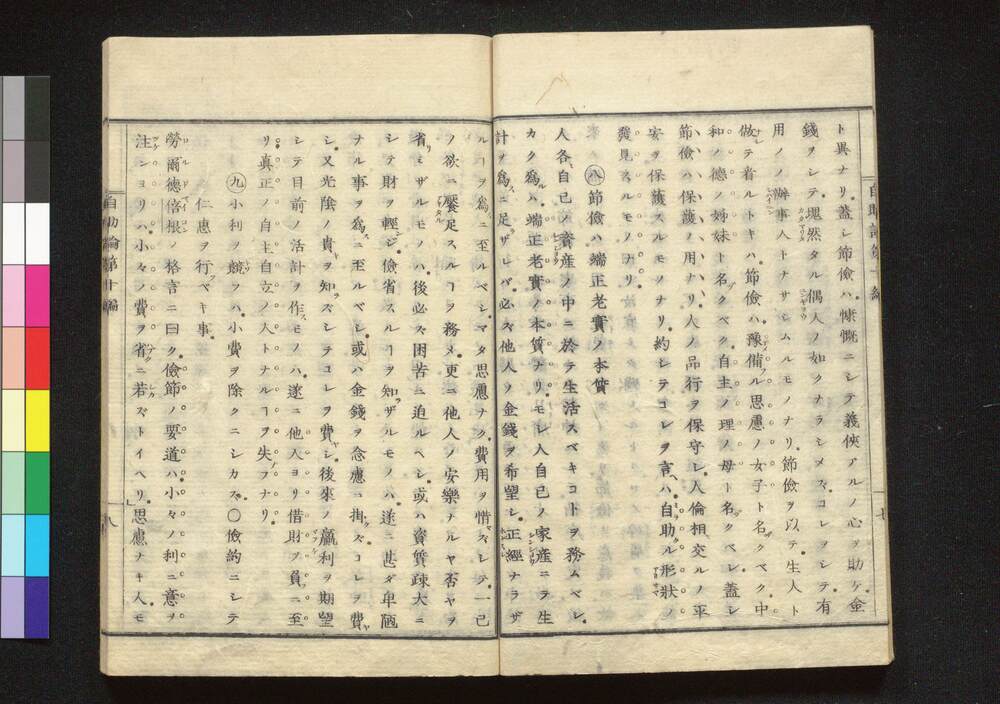 ト異ナリ蓋シ節儉ハ慷慨ニシテ義俠アルノ心ヲ助ケ金
錢ヲシテ塊然タル偶人ノ如クナラシメズコレヲシテ有
用ノ辦事人トナサシムルモノナリ節儉ヲ以テ生人ト
做テ看ルトキハ節儉ハ豫備スル思慮ノ女子ト名クベク中
和ノ德ノ姉妹ト名クベク自主ノ理ノ母ト名クベシ蓋シ
節儉ハ保護ノ用ナリ人ノ品行ヲ保守シ人倫相交ルノ平
安ヲ保護スルモノナリ約シテコレヲ言ハ自助ル形狀ノ
發見スルモノナリ
八 節儉ハ端正老實ノ本質
人各自己ノ資産ノ中ニ於テ生活スベキコトヲ務ムベシ
カク爲ハ端正老實ノ本質ナリモシ人自己ノ家産ニテ生
計ヲ爲ニ足ザレバ必ズ他人ノ金錢ヲ希望シ正經ナラザ
自助論第十編
七
ルヿヲ爲ニ至ルベシマタ思慮ナク費用ヲ惜ズシテ一己
ノ欲ニ饜足スルヿヲ務メ更ニ他人ノ安樂ナルヤ否ヤヲ
省ミザルモノハ後必ズ困苦ニ迫ルベシ或ハ資質疎大ニ
シテ財ヲ輕ジ儉省スルヿヲ知ザルモノハ遂ニ甚ダ卑陋
ナル事ヲ爲ニ至ルベシ或ハ金錢ヲ念慮ニ掛ズコレヲ費
シ又光陰ノ貴ヲ知ズシテコレヲ費シ後來ノ贏利ヲ期望
シテ目前ノ活計ヲ作スモノハ遂ニ他人ヨリ借財ヲ負ニ至
リ眞正ノ自主自立ノ人トナルヿヲ失フナリ
九 小利ヲ競フハ小費ヲ除クニシカズ〇儉約ニシテ
仁惠ヲ行ベキ事
勞爾德倍根ノ格言ニ曰ク儉節ノ要道ハ小々ノ利ニ意ヲ
注ンヨリハ小々ノ費ヲ省ニ若ズトイヘリ思慮ナキ人モ
自助論第十編
八